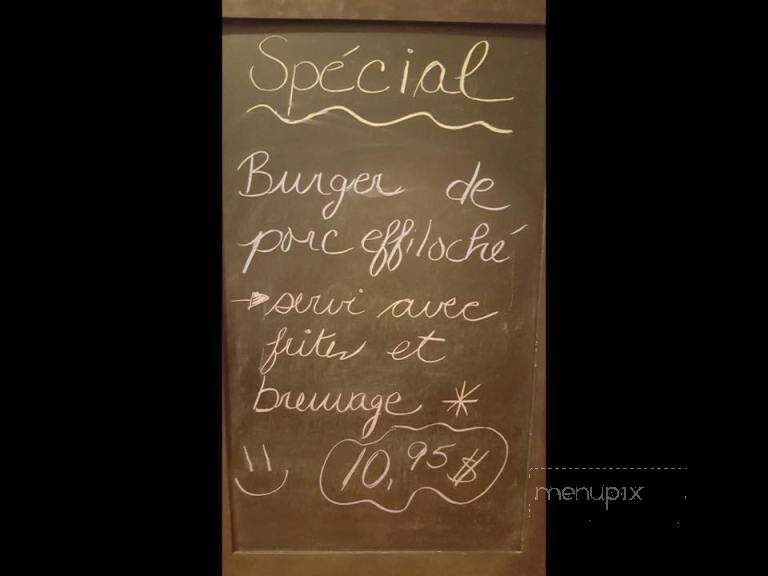 Spécial
Burger de
porc effiloché
→ servi avec
frites et
breuvage *
10,95 $
menupix